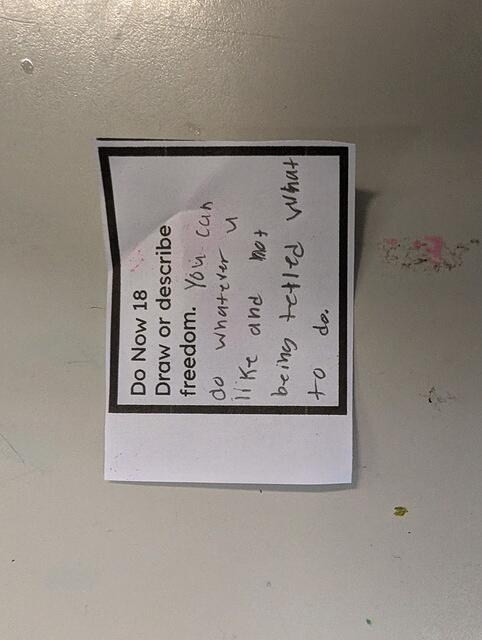 Do Now 18
Draw or describe
freedom. You can
do whatever u
like and not
being tetled what
to do.